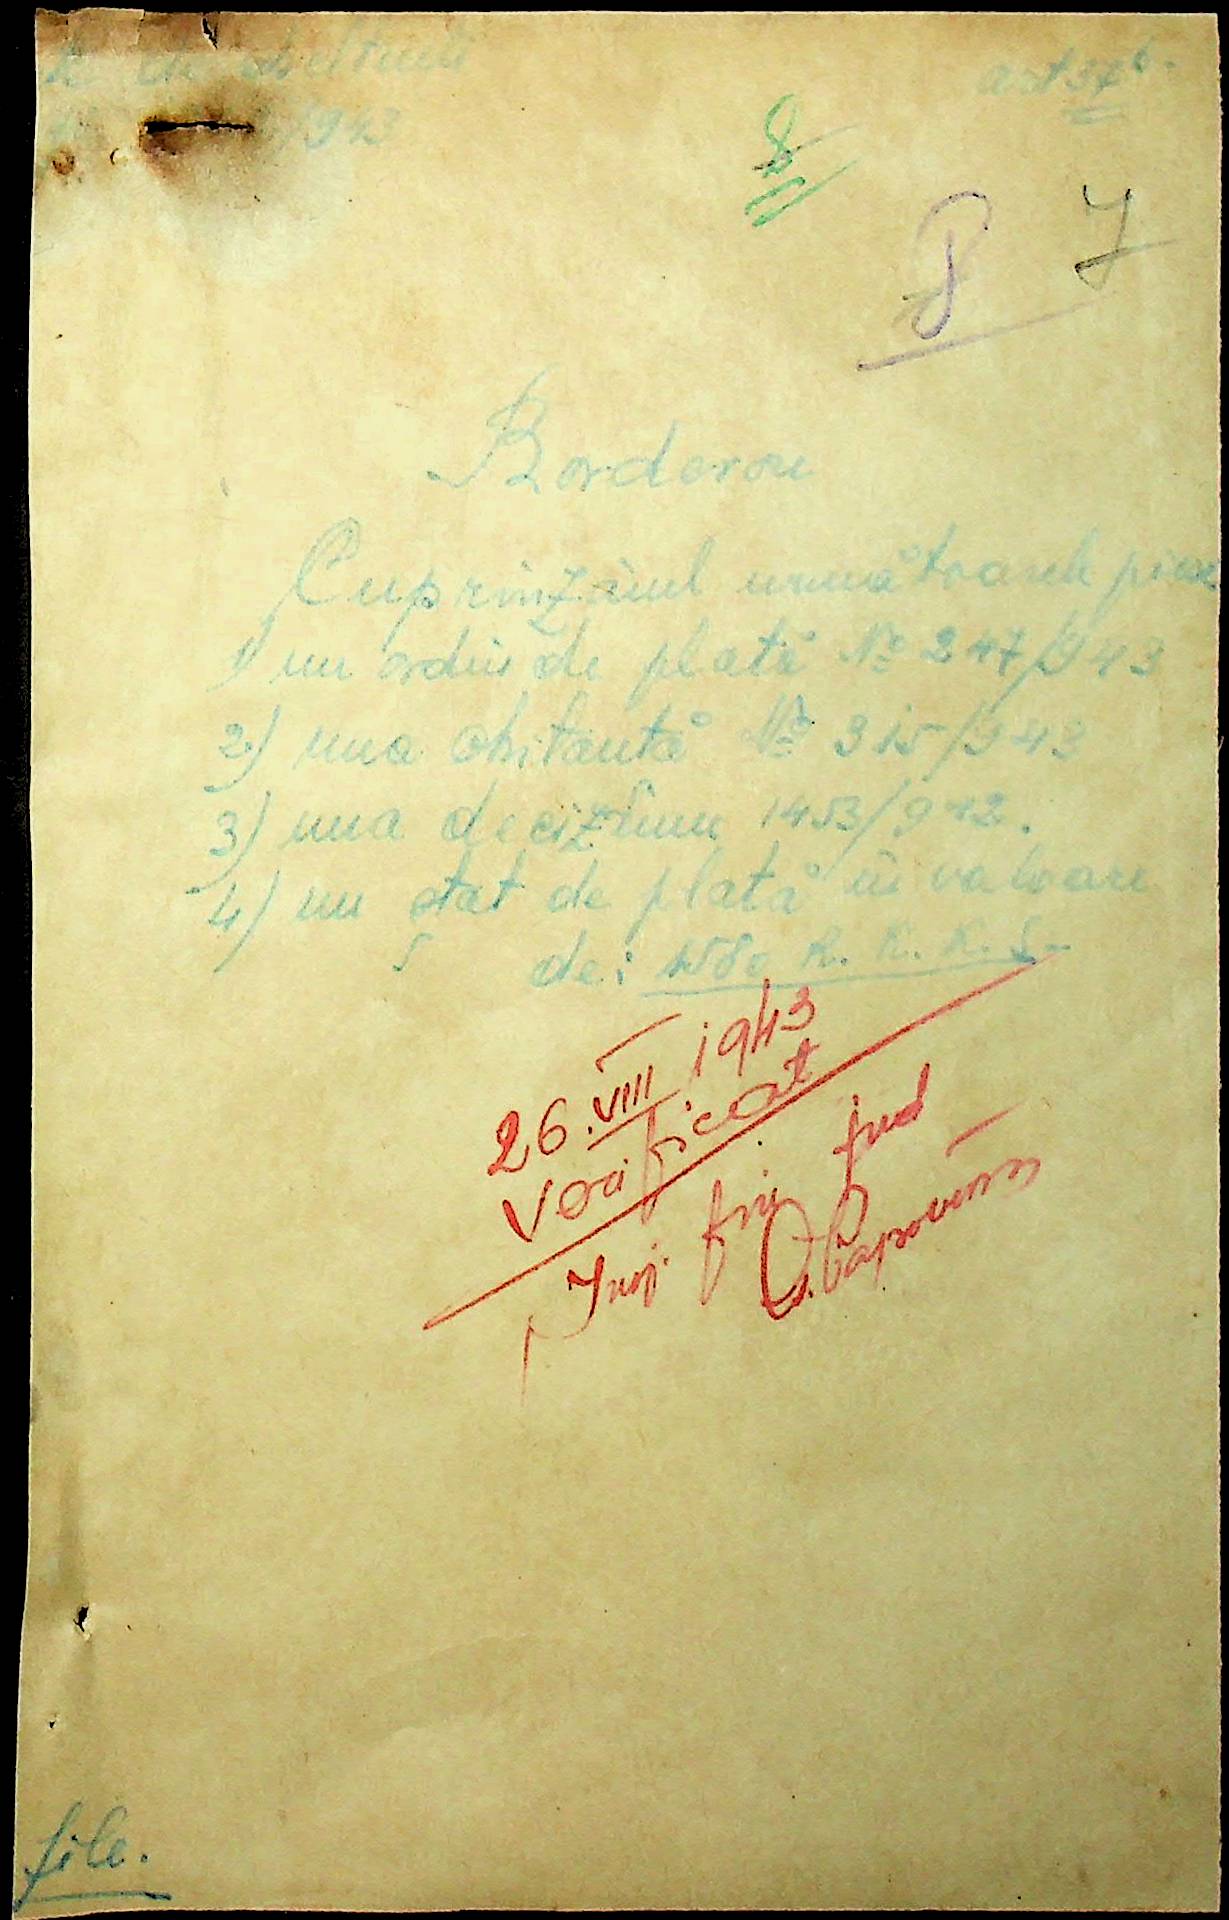 de cheltueli
/943
art 37 b.
8
8
7
Borderou
Cuprinzând următoarele piese
1) un ordin de plată № 247/943
2) una chitanță № 315/943
3) una deciziune 1453/942.
4) un stat de plată în valoare
de: R. K. K. S.
26.VIII 1943
Verificat
fin jud
file.